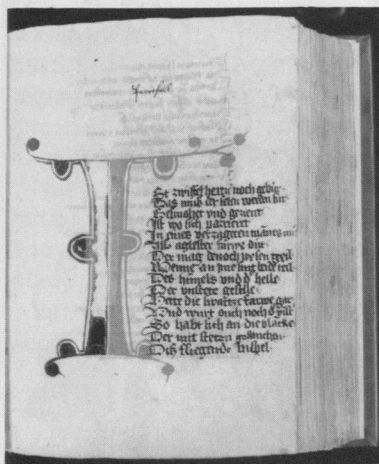 Parcifal
ISt zwiffel hertze noch gebur
Das mus der selen werden sur
Gesmehet vnd gezieret
Ist wo sich parrieret
In eins verzageten mannes mut
Als agelster varwe dut
Der mag denoch wesen geyl
Wenne an ime sint beide teil
Des himels vnd d' helle
Der vnstete geselle
Hette die swartze farwe gar
Vnd wurt ouch noch d'
So habt sich an die blancke
Der mit stetem gedancken
Dis fliegende